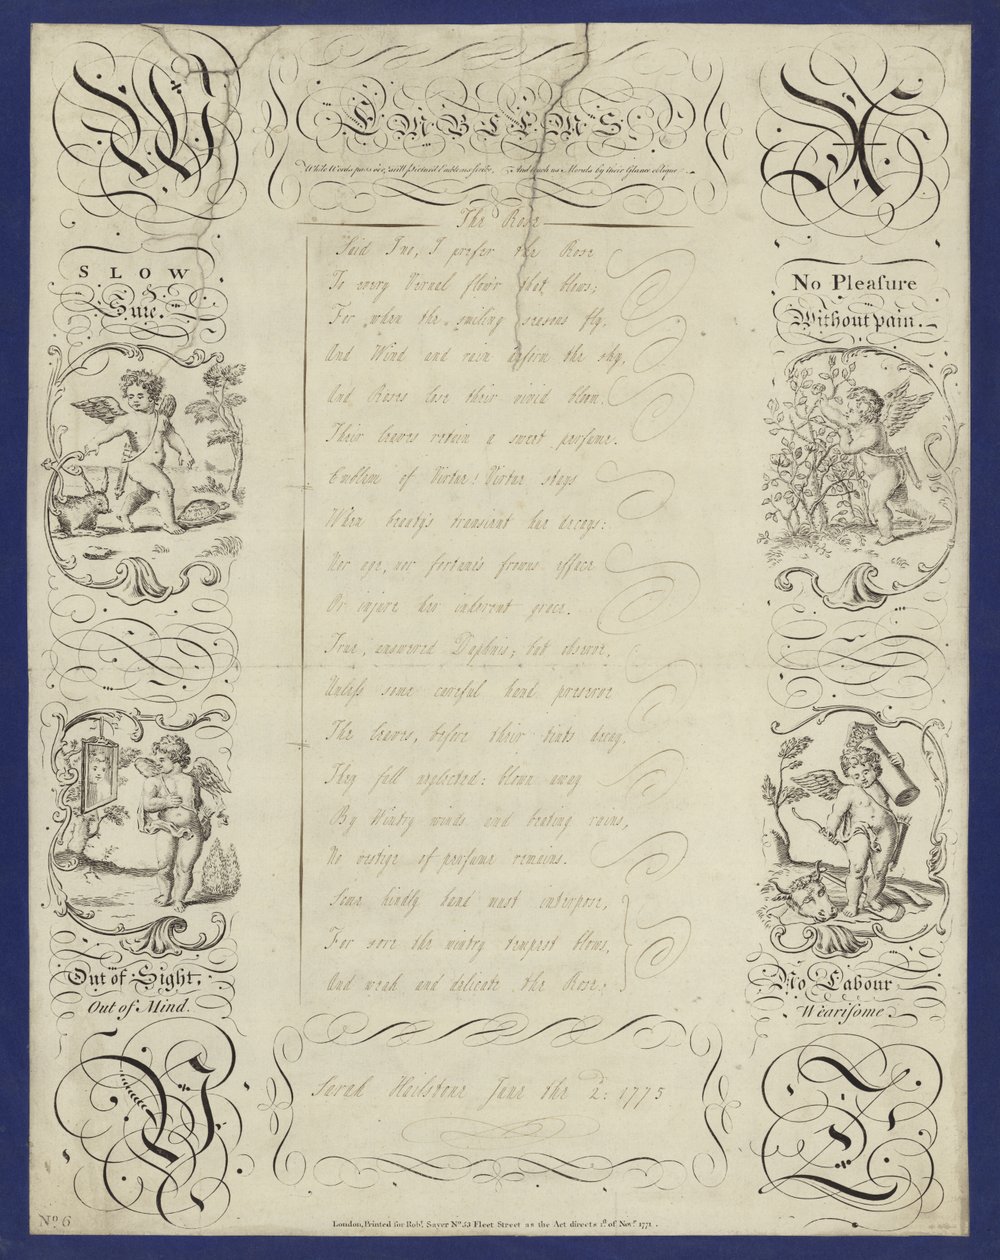 W
EMBLEMS
X
While Words pass o'er, will Pictur'd Emblems strike,
And teach us Morals by their Glance oblique
SLOW
&
Sure.
No Pleaſure
Without pain.
The Rose
Said Ino, I prefer the Rose
To every Vernal flow'r that blows;
For when the smiling seasons fly,
And Wind and rain deform the sky,
And Roses lose their vivid bloom,
Their leaves retain a sweet perfume.
Emblem of Virtue! Virtue stays
When beauty's transient hue decays:
Nor age, nor fortune's frowns efface
Or injure her inherent grace.
True, answered Daphnis; but observe,
Unleſs some careful hand preserve
The leaves, before their tints decay,
They fall neglected: blown away
By Wintry winds and beating rains,
No vestige of perfume remains.
Some kindly hand must interpose,
For sore the wintry tempest blows,
And weak and delicate the Rose.
Out of Sight,
Out of Mind.
No Labour
Weariſome
Y
Z
Sarah Hailstone June the 2d: 1775
No. 6
London, Printed for Robt. Sayer No. 53 Fleet Street as the Act directs 1st. of Novr. 1771.